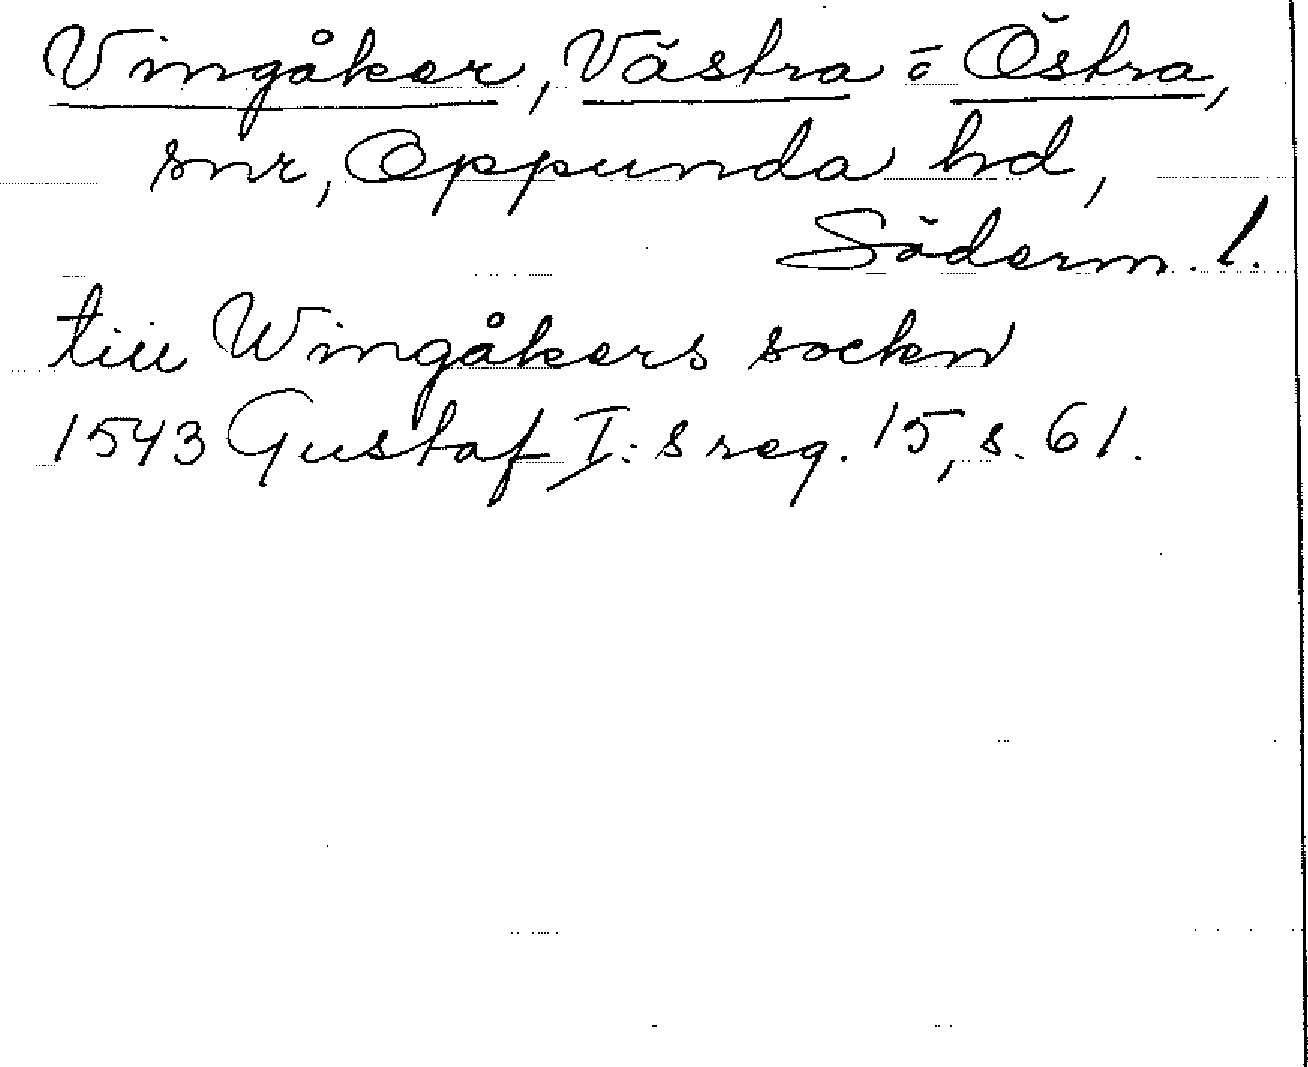 Vingåker, Västra o Östra,
snr, Oppunda hd,
Söderm. l.
till Wingåkers sockn
1543 Gustaf I:s reg. 15, s. 61.